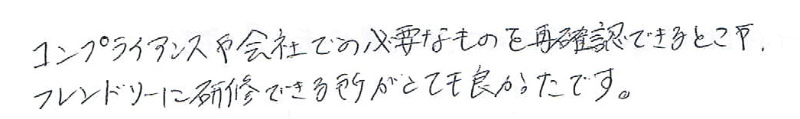 コンプライアンスや会社での必要なものを再確認できるとこや、
フレンドリーに研修できる所がとても良かったです。